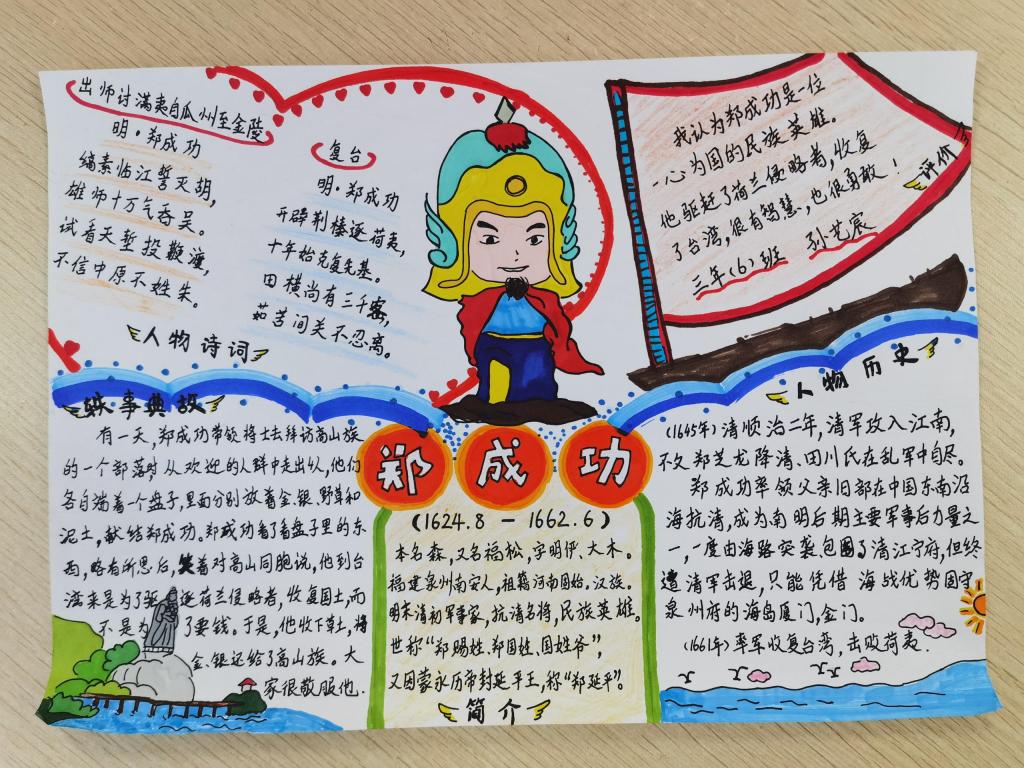 出师讨满夷自瓜州至金陵
明·郑成功
缟素临江誓灭胡,
雄师十万气吞吴。
试看天堑投鞭渡,
不信中原不姓朱。
人物诗词
复台
明·郑成功
开辟荆榛逐荷夷,
十年始克复先基。
田横尚有三千客,
茹苦间关不忍离。
我认为郑成功是一位
一心为国的民族英雄。
他驱赶了荷兰侵略者,收复
了台湾,很有智慧,也很勇敢!
三年(6)班 孙艺宸
评价
轶事典故
有一天,郑成功带领将士去拜访高山族
的一个部落时,从欢迎的人群中走出4人,他们
各自端着一个盘子,里面分别放着金、银、野草和
泥土,献给郑成功。郑成功看了看盘子里的东
西,略有所思后,笑着对高山同胞说,他到台
湾来是为了驱逐荷兰侵略者,收复国土,而
不是为了要钱。于是,他收下草土,将
金、银还给了高山族。大
家很敬服他.
郑成功
(1624.8 — 1662.6)
本名森,又名福松,字明伊、大木。
福建泉州南安人,祖籍河南固始。汉族。
明末清初军事家,抗清名将,民族英雄。
世称“郑赐姓、郑国姓、国姓爷”,
又因蒙永历帝封延平王,称“郑延平”。
简介
人物历史
(1645年)清顺治二年,清军攻入江南,
不久郑芝龙降清、田川氏在乱军中自尽。
郑成功率领父亲旧部在中国东南沿
海抗清,成为南明后期主要军事后力量之
一,一度由海路突袭、包围了清江宁府,但终
遭清军击退,只能凭借海战优势固守
泉州府的海岛厦门,金门。
(1661年)率军收复台湾,击败荷夷.